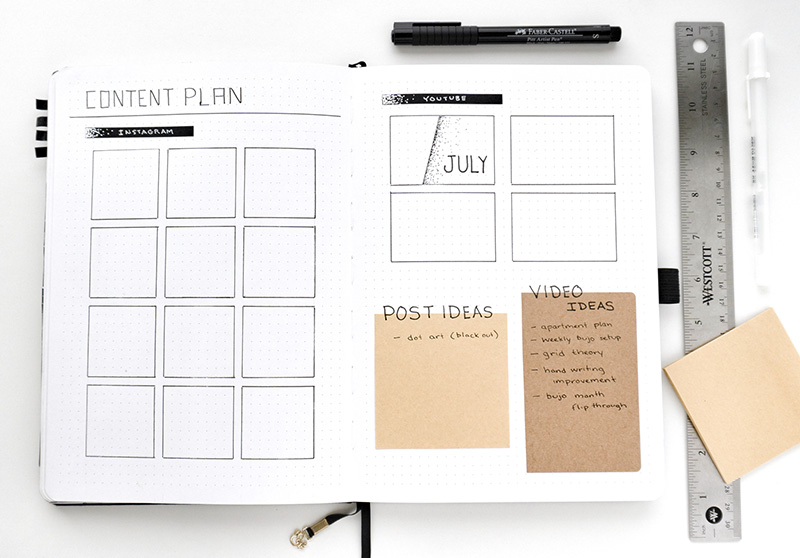 CONTENT PLAN
INSTAGRAM
YOUTUBE
JULY
POST IDEAS
- dot art (blackout)
VIDEO
IDEAS
- apartment plan
- weekly bujo setup
- grid theory
- hand writing
improvement
- bujo month
flip through
FABER-CASTELL
Pitt Artist Pen
S
STAINLESS STEEL
WESTCOTT
12
11
10
9
8
7
6
5
2
1